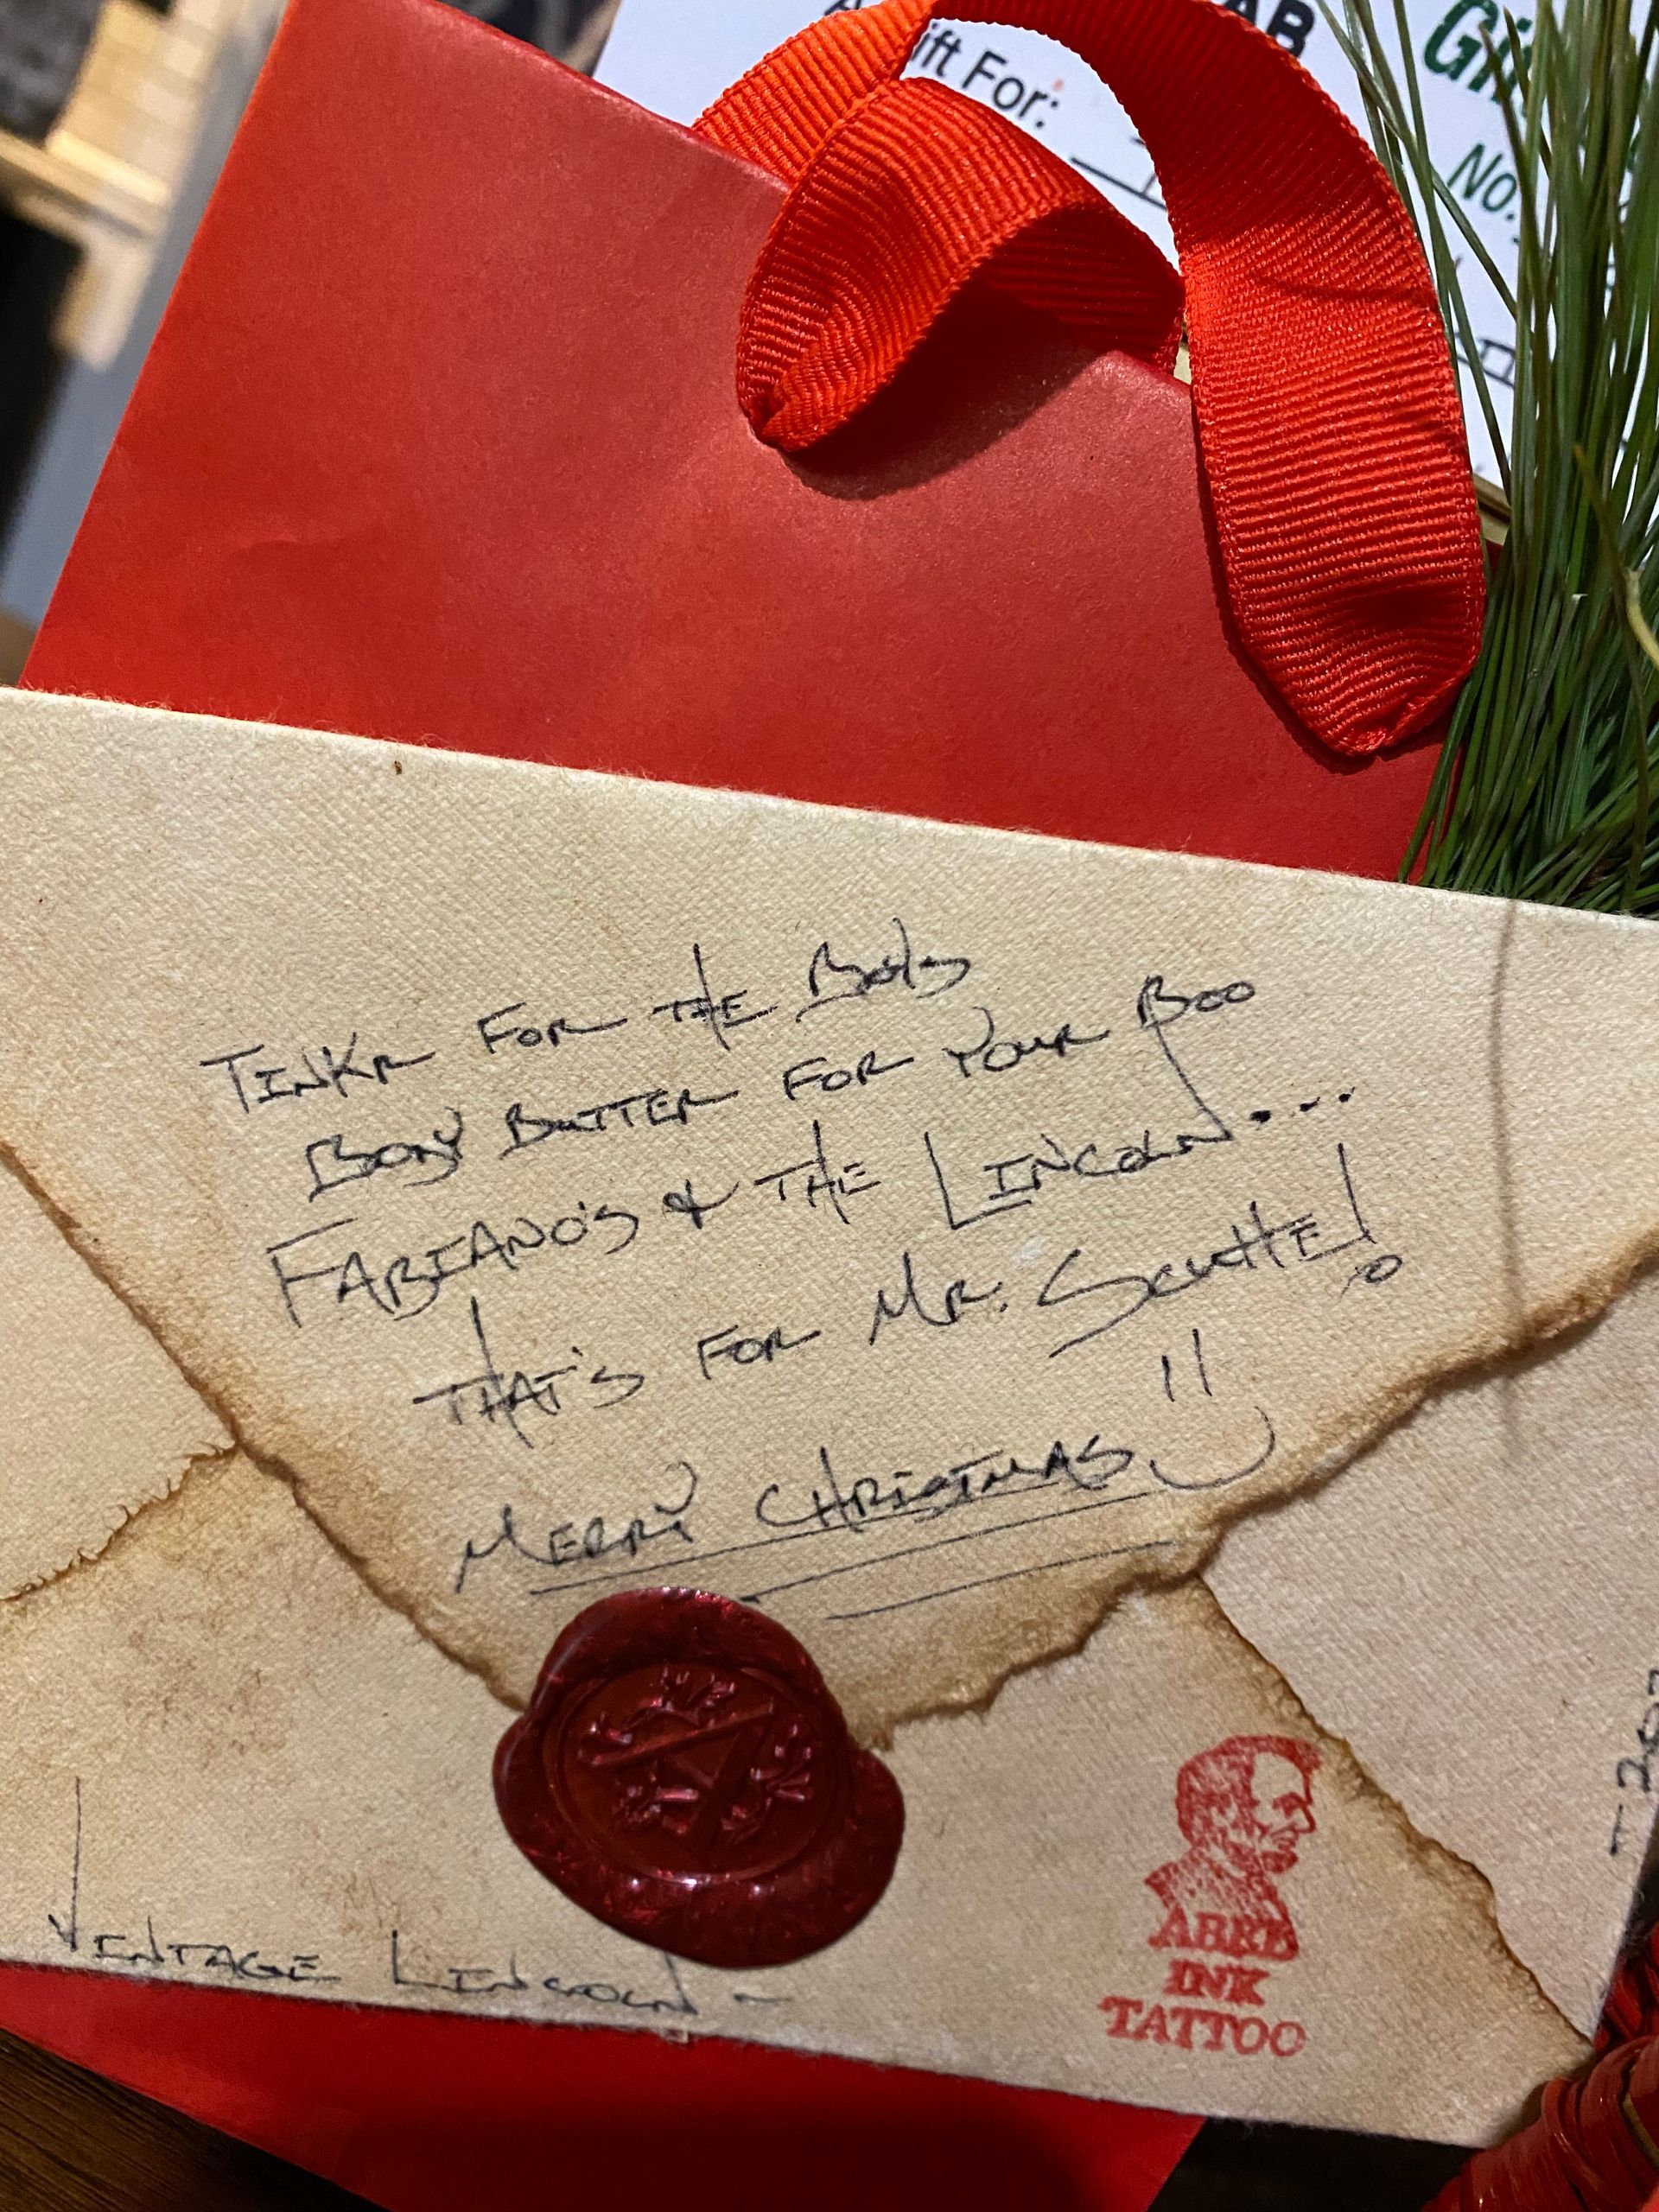 AB
A Gift For:
No.
TINKR FOR THE BOYS
BODY BUTTER FOR YOUR BOO
FABIANO'S & THE LINCOLN....
THAT'S FOR MR. SCUTTE!
MERRY CHRISTMAS
VINTAGE LINCOLN -
ABEL
INK
TATTOO